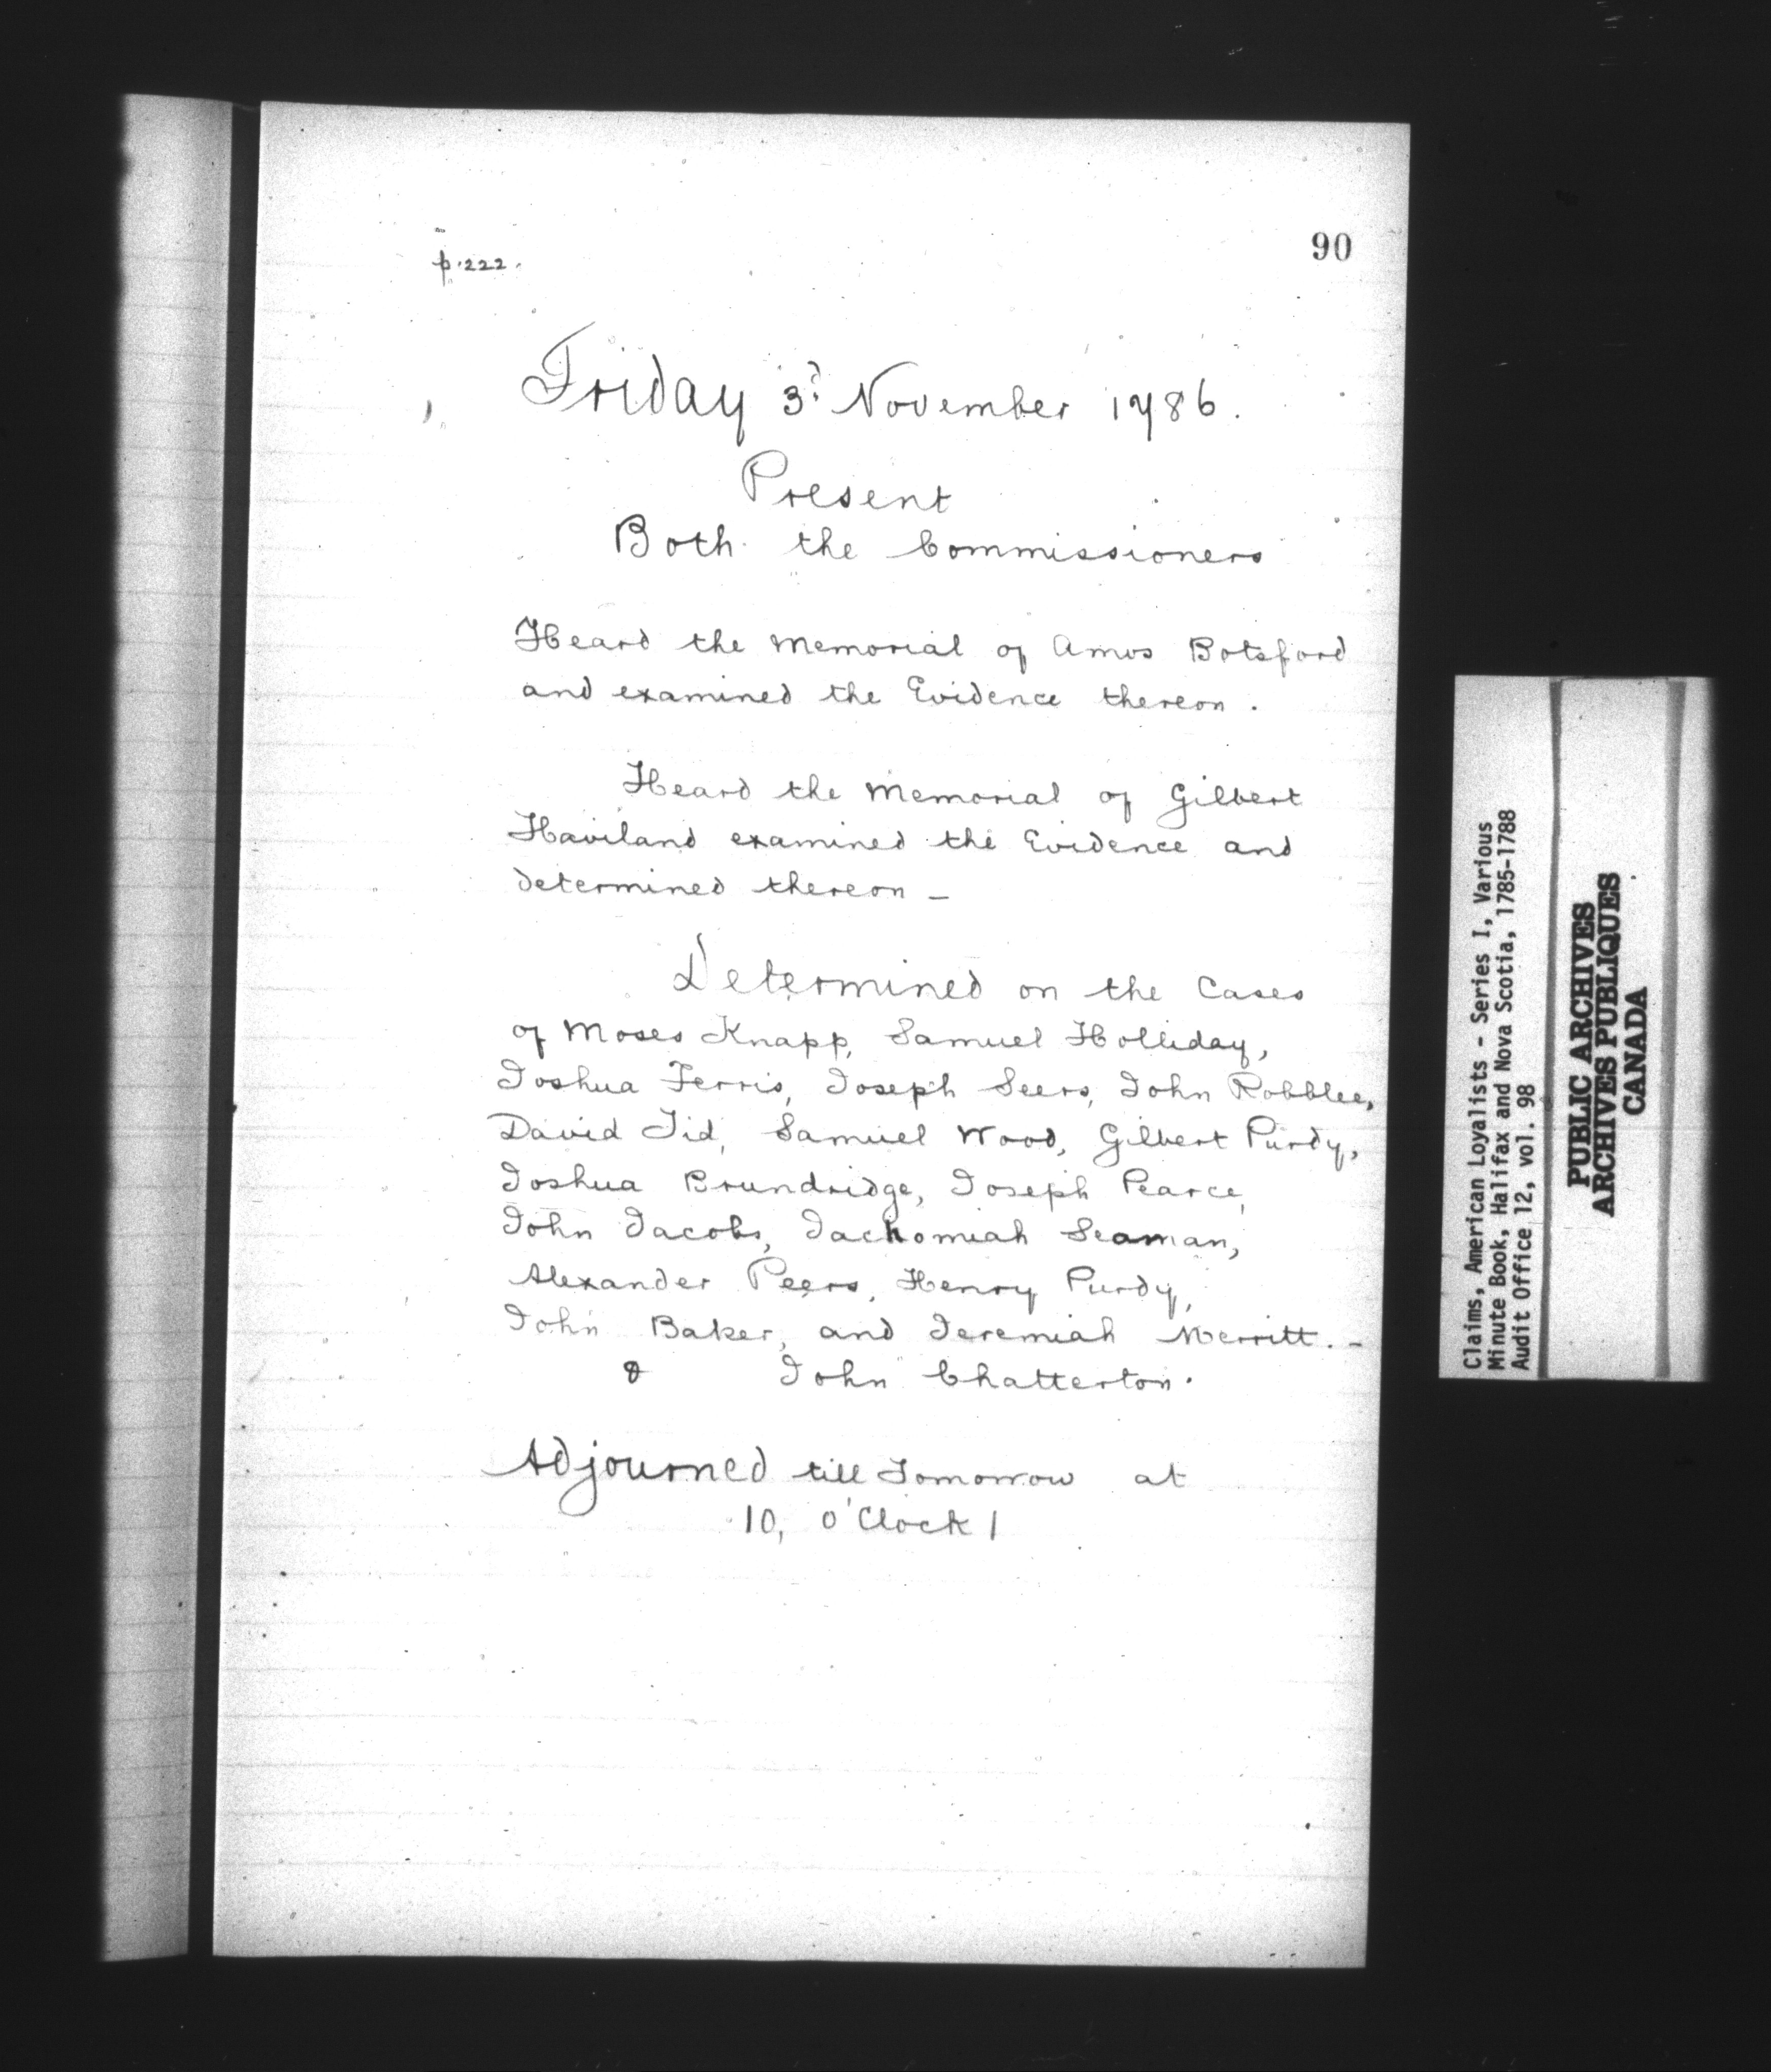 p. 222.
90
Friday 3d November 1786.
Present
Both the Commissioners
Heard the Memorial of Amos Botsford
and examined the Evidence thereon.
Heard the Memorial of Gilbert
Haviland examined the Evidence and
determined thereon -
Determined on the Cases
of Moses Knapp, Samuel Holliday,
Joshua Ferris, Joseph Seers, John Robblee,
David Tid, Samuel Wood, Gilbert Purdy,
Joshua Brundridge, Joseph Pearce,
John Jacobs, Jackomiah Seaman,
Alexander Peers, Henry Purdy,
John Baker, and Jeremiah Merritt. -
& John Chatterton.
Adjourned till Tomorrow at
10, o'Clock /
Claims, American Loyalists - Series I, Various
Minute Book, Halifax and Nova Scotia, 1785-1788
Audit Office 12, vol. 98
PUBLIC ARCHIVES
ARCHIVES PUBLIQUES
CANADA